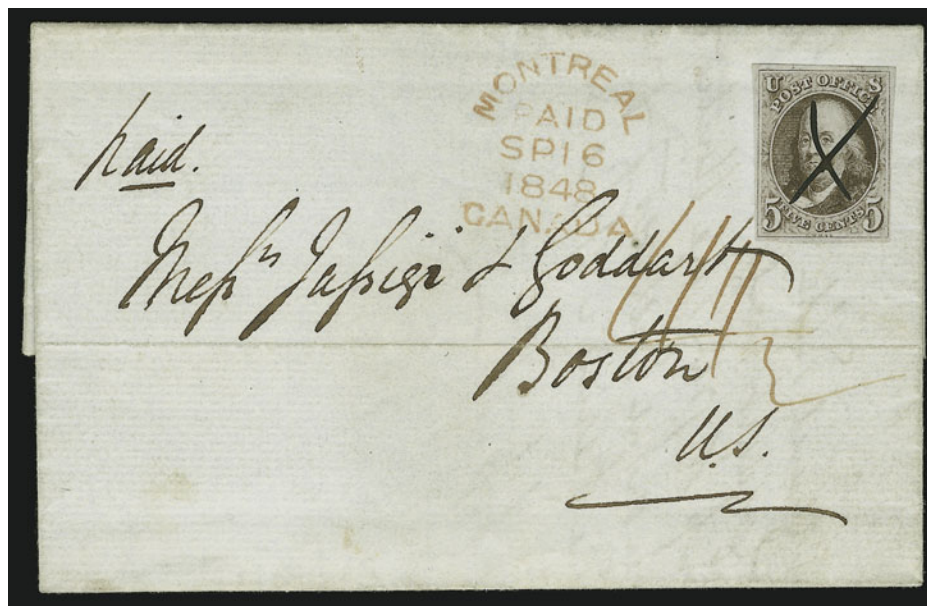 MONTREAL
PAID
SP 16
1848
CANADA
U S
POST OFFICE
5 FIVE CENTS 5
paid.
Messrs Iassigi & Goddard
Boston
U.S.